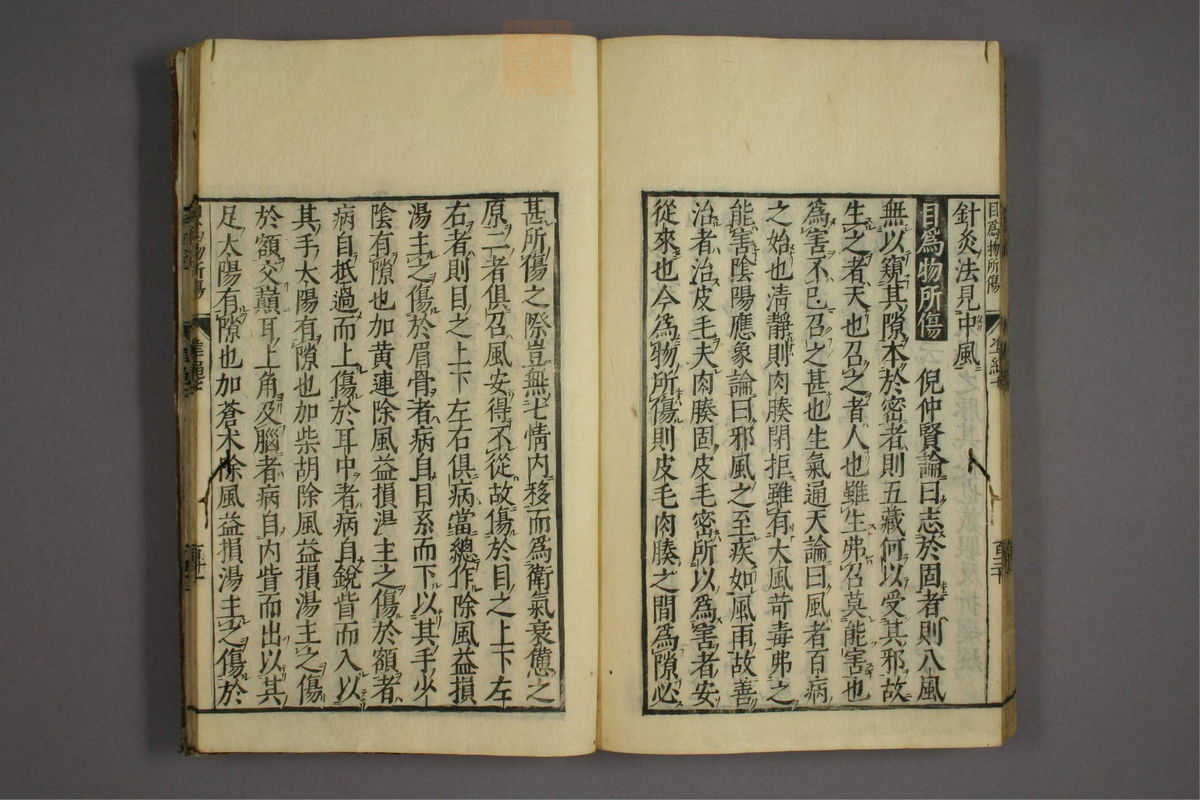 目爲物所傷
針灸法見中風
目爲物所傷 倪仲賢論曰志於固者則八風
無以窺其隙本於密者則五藏何以受其邪故
生之者天也召之者人也雖生弗召莫能害也
爲害不已召之甚也生氣通天論曰風者百病
之始也淸靜則肉腠閉拒雖有大風苛毒弗之
能害陰陽應象論曰邪風之至疾如風雨故善
治者治皮毛夫肉腠固皮毛密所以爲害者安
從來也今爲物所傷則皮毛肉腠之間爲隙必
甚所傷之際豈無七情內移而爲衛氣衰憊之
原二者俱召風安得不從故傷於目之上下左
右者則目之上下左右俱病當總作除風益損
湯主之傷於眉骨者病自目系而下以其手少
陰有隙也加黄連除風益損湯主之傷於額者
病自抵過而上傷於耳中者病自銳眥而入以
其手太陽有隙也加柴胡除風益損湯主之傷
於額交巔耳上角及腦者病自內眥而出以其
足太陽有隙也加蒼朮除風益損湯主之傷於